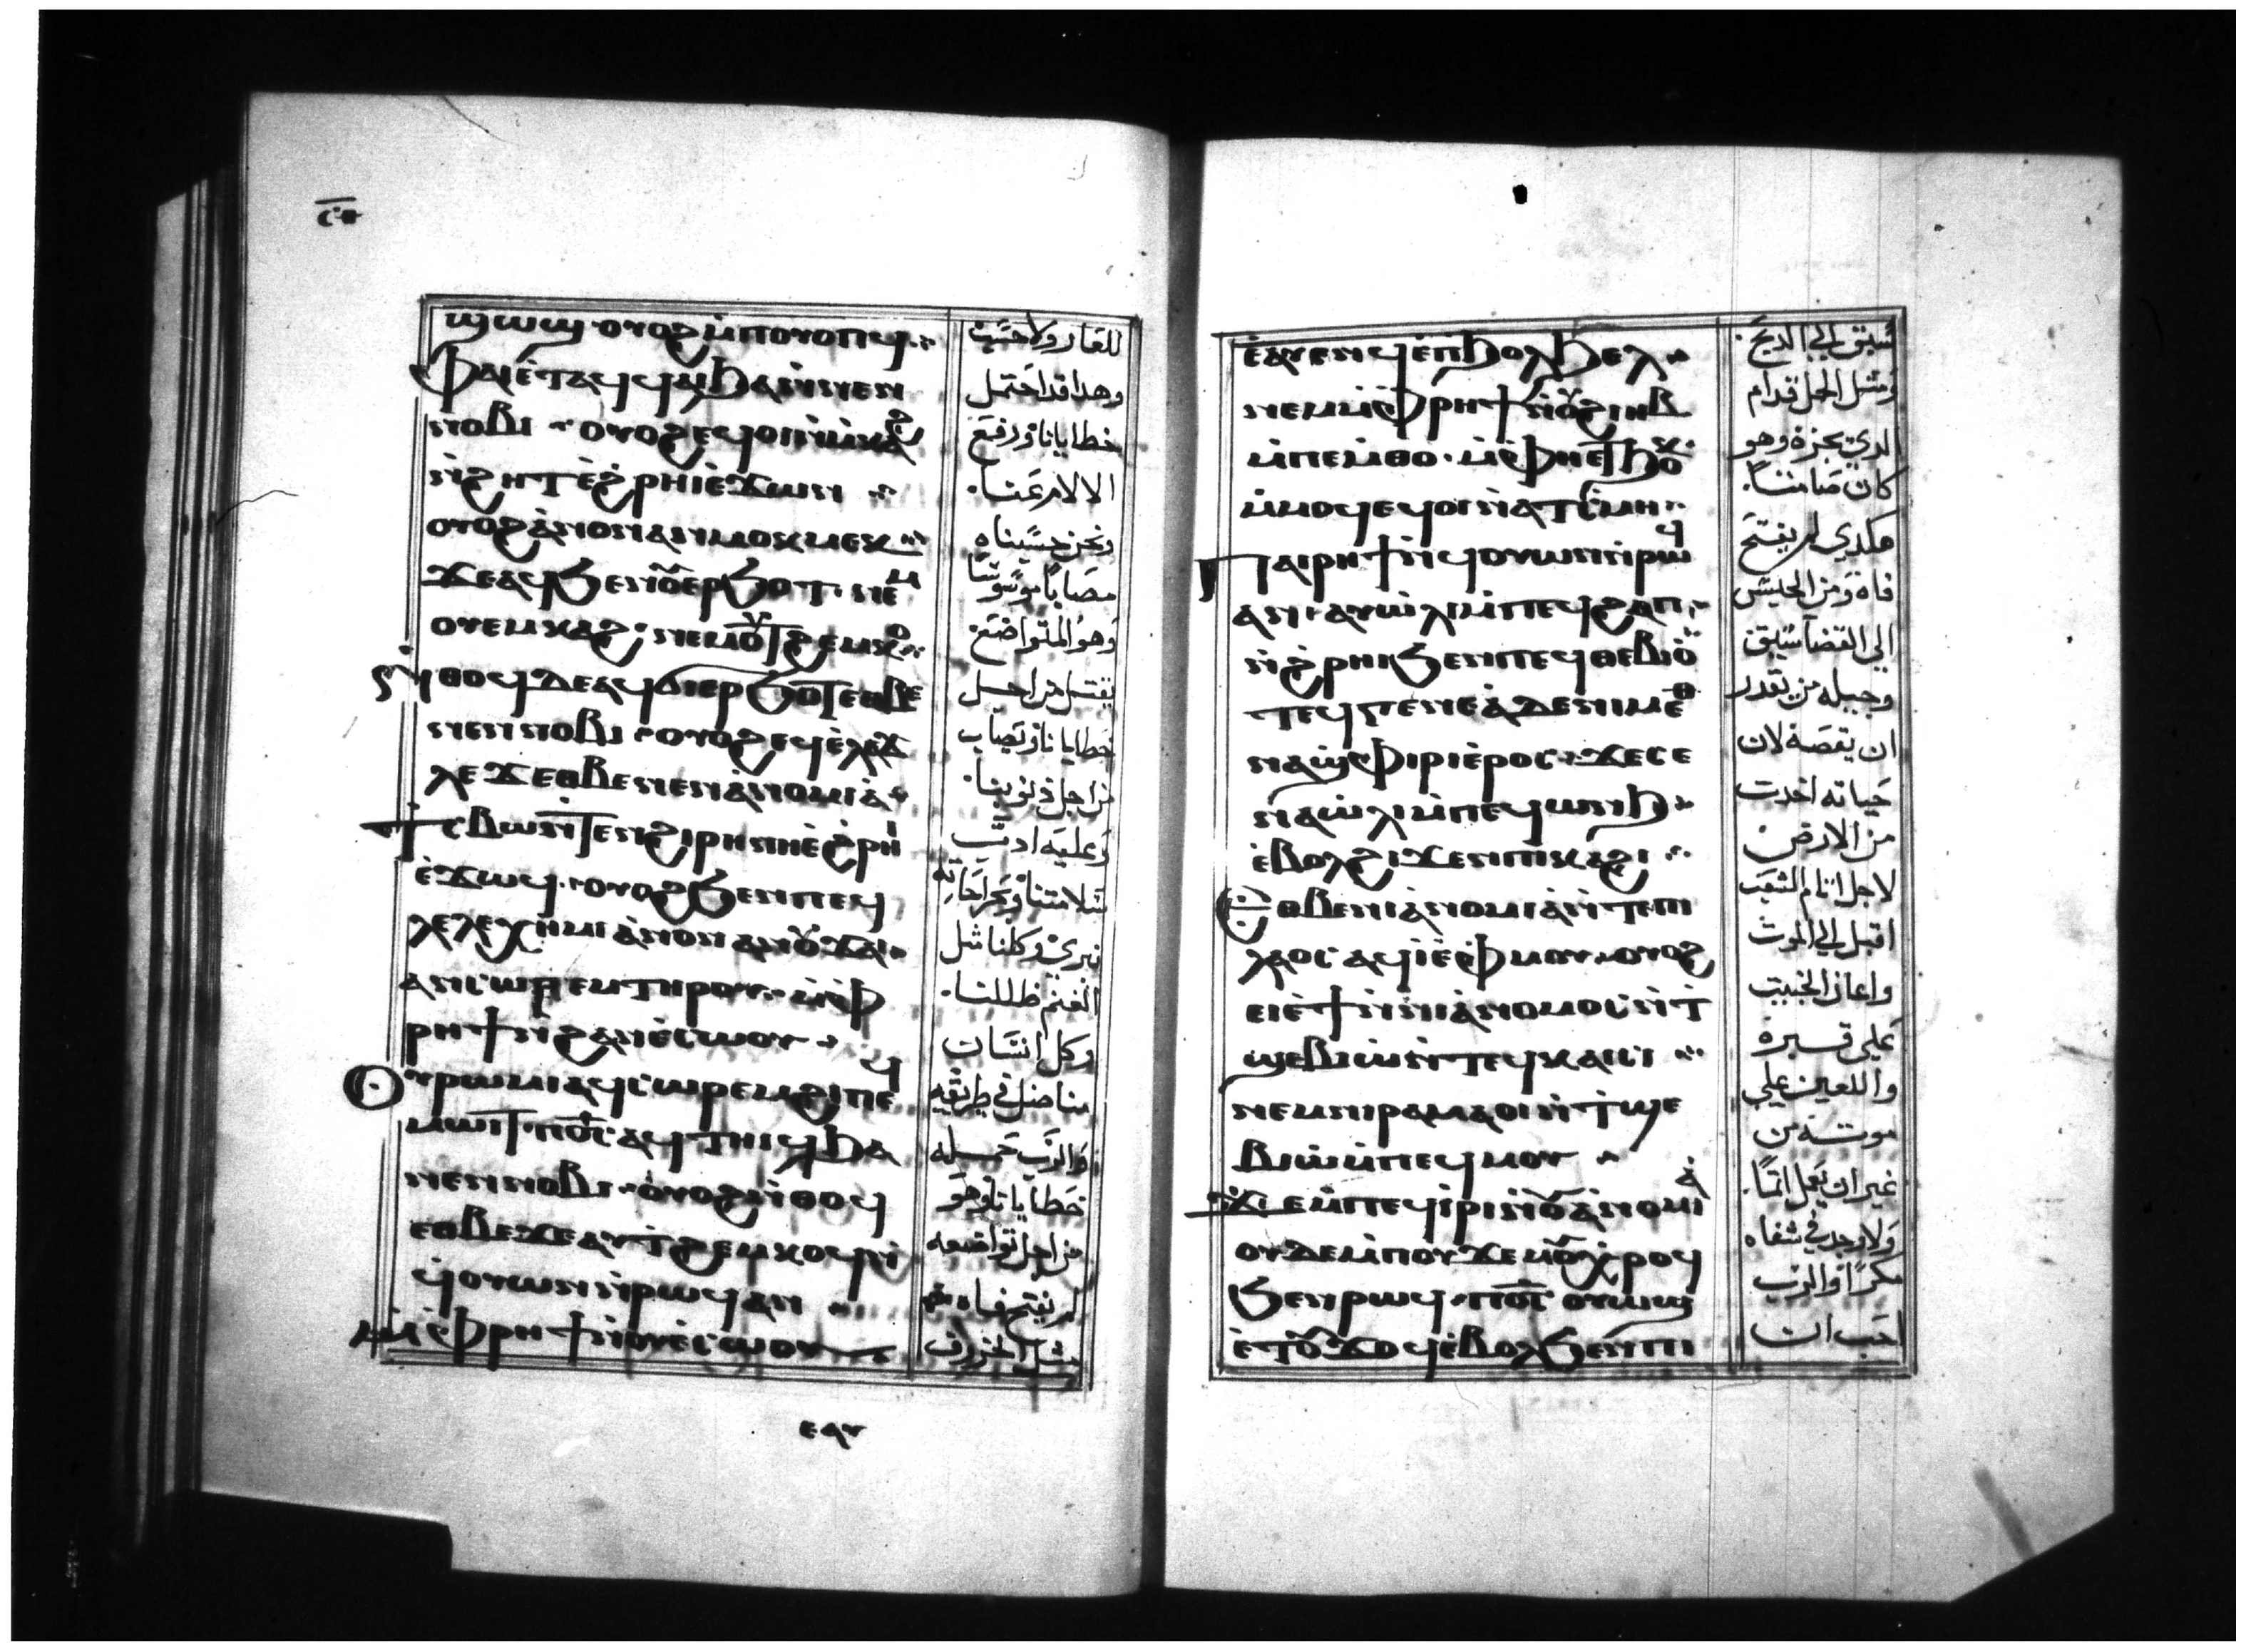 ϣⲱϣ ⲟⲩⲟϩ ⲙ̀ⲡⲟⲩⲟⲡϥ
ⲫⲁⲓ ⲉ̀ⲧⲁϥϥⲁⲓ ϧⲁ ⲛⲉⲛ
ⲛⲟⲃⲓ · ⲟⲩⲟϩ ⲉϥⲟⲓ ⲙ̀ⲙⲕⲁϩ
ⲛ̀ϩⲏⲧ ⲉ̀ϩⲣⲏⲓ ⲉ̀ϫⲱⲛ
ⲟⲩⲟϩ ⲁ̀ⲛⲟⲛ ⲁⲛⲙⲟⲕⲙⲉⲕ
ϫⲉ ⲁϥϧⲉⲛ ⲟⲩⲉⲣϧⲟⲧ · ⲛⲉⲙ
ⲟⲩⲉⲙⲕⲁϩ · ⲛⲉⲙ ⲟⲩϯϩⲉⲙⲕⲟ
ⲛ̀ⲑⲟϥ ⲇⲉ ⲁϥϭⲓⲉⲣϧⲟϯ ⲉⲑⲃⲉ
ⲛⲉⲛⲛⲟⲃⲓ · ⲟⲩⲟϩ ⲉϥⲉ̀ⲗⲉϫ
ⲗⲉϫ ⲉⲑⲃⲉ ⲛⲉⲛⲁ̀ⲛⲟⲙⲓⲁ̀
ϯⲥⲃⲱ ⲛ̀ⲧⲉ ⲧⲉⲛϩⲓⲣⲏⲛⲏ ⲉ̀ϩⲣⲏⲓ
ⲉ̀ϫⲱϥ · ⲟⲩⲟϩ ϧⲉⲛ ⲡⲉϥ
ⲗⲉⲗⲉⲭⲏⲙⲓ ⲁ̀ⲛⲟⲛ ⲁⲛⲟⲩϫⲁⲓ
ⲁⲛⲥⲱⲣⲉⲙ ⲧⲏⲣⲟⲩ · ⲙ̀ⲫ
ⲣⲏϯ ⲛ̀ϩⲁⲛⲉ̀ⲥⲱⲟⲩ
ⲟⲩⲣⲱⲙⲓ ⲁϥⲥⲱⲣⲉⲙ ϩⲓ ⲡⲉϥ
ⲙⲱⲓⲧ · ⲡⲟ̅ⲥ̅ ⲁϥⲧⲏⲓϥ ϧⲁ
ⲛⲉⲛⲛⲟⲃⲓ · ⲟⲩⲟϩ ⲛ̀ⲑⲟϥ
ⲉⲑⲃⲉ ϫⲉ ⲁⲩϯϩⲉⲙⲕⲟϥ ⲛ̀
ϥⲟⲩⲱⲛ ⲛ̀ⲣⲱϥ ⲁⲛ
ⲙ̀ⲫⲣⲏϯ ⲛ̀ⲟⲩⲉ̀ⲥⲱⲟⲩ
للعار ولا حسب
وهدا قد احتمل
خطايانا ورفع
الالام عنا.
ونحن حسبناه
مصابًا موسوسًا
وهو المتواضع
يقتل من اجل
خطايانا وتصاب
من اجل ذنوبنا.
وعليه ادب
سلامتنا وبجراحاته
نبرئ وكلنا مثل
الغنم ظللنا.
وكل انسان
منا ضل في طريقه
والرب حمله
خطايانا وهو
من اجل تواضعه
لم يفتح فاه
مثل الخروف
ⲉⲁⲩ
ⲉ̀ⲁⲩⲉⲛϥ ⲉ̀ⲡϧⲟⲗϧⲉⲗ
ⲛⲉⲙ ⲙ̀ⲫⲣⲏϯ ⲛ̀ⲟⲩϩⲓⲏⲃ
ⲙ̀ⲡⲉⲙⲑⲟ · ⲙ̀ⲫⲏⲉⲧϧⲱⲕ
ⲙ̀ⲙⲟϥ ⲉϥⲟⲓ ⲛ̀ⲁⲧⲥ̀ⲙⲏ
ⲡⲁⲓⲣⲏϯ ⲛ̀ϥⲟⲩⲱⲛ ⲛ̀ⲣⲱϥ
ⲁⲛ · ⲁⲩⲱ̀ⲗⲓ ⲙ̀ⲡⲉϥϩⲁⲡ
ⲛ̀ϩ̀ⲣⲏⲓ ϧⲉⲛ ⲡⲉϥⲑⲉⲃⲓⲟ
ⲧⲉϥⲅⲉⲛⲉⲁ̀ ⲇⲉ ⲛⲓⲙ ⲉⲑ
ⲛⲁϣⲫⲓⲣⲓ ⲉ̀ⲣⲟⲥ · ϫⲉ ⲥⲉ
ⲛⲁⲱ̀ⲗⲓ ⲙ̀ⲡⲉϥⲱⲛϧ
ⲉ̀ⲃⲟⲗ ϩⲓϫⲉⲛ ⲡⲓⲕⲁϩⲓ
ⲉⲑⲃⲉ ⲛⲓⲁ̀ⲛⲟⲙⲓⲁ̀ ⲛ̀ⲧⲉ ⲡⲓ
ⲗⲁⲟⲥ ⲁϥⲓ̀ ⲉ̀ⲫⲙⲟⲩ · ⲟⲩⲟϩ
ⲉⲓⲉ̀ϯ ⲛ̀ⲛⲓⲁ̀ⲛⲟⲙⲟⲥ ⲛ̀ⲧ̀
ϣⲉⲃⲓⲱ̀ ⲛ̀ⲧⲉϥⲕⲁⲓⲥⲓ
ⲛⲉⲙ ⲛⲓⲣⲁⲙⲁⲟⲓ ⲛ̀ⲧ̀ϣⲉ
ⲃⲓⲱ̀ ⲙ̀ⲡⲉϥⲙⲟⲩ
ϫⲉ ⲙ̀ⲡⲉϥⲓ̀ⲣⲓ ⲛ̀ⲟⲩⲁ̀ⲛⲟⲙⲓⲁ̀
ⲟⲩⲇⲉ ⲙ̀ⲡⲟⲩϫⲉⲙ ⲟⲩⲭⲣⲟϥ
ϧⲉⲛ ⲣⲱϥ · ⲡⲟ̅ⲥ̅ ⲟⲩⲱϣ
ⲉ̀ⲧⲟⲩϫⲟϥ ⲉ̀ⲃⲟⲗ ϧⲉⲛ ⲡⲓ
سيق الي الدبح.
ومثل الحمل قدام
الدي يجزه وهو
كان صامتاً.
هكدي لم يفتح
فاه ومن الحبس
الي القضا سيق
وجيله من يقدر
ان يقصه لان
حياته اخدت
من الارض
لاجل اثام الشعب
اقبل الي الموت
واعان الخبيث
علي قبره
واللعين علي
موته من
غير ان يعمل اثمًا.
ولا وجد في شفاه
مكرًا والرب
احب ان